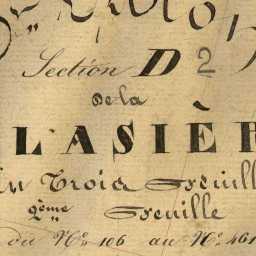 Section D 2
De la
LASIÈR
En Trois Feuill
2ème Feuille
du N° 106 au N° 461